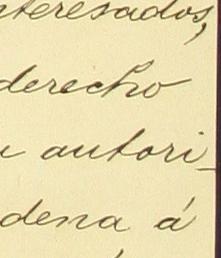 nteresados,
derecho
autori-
dena á